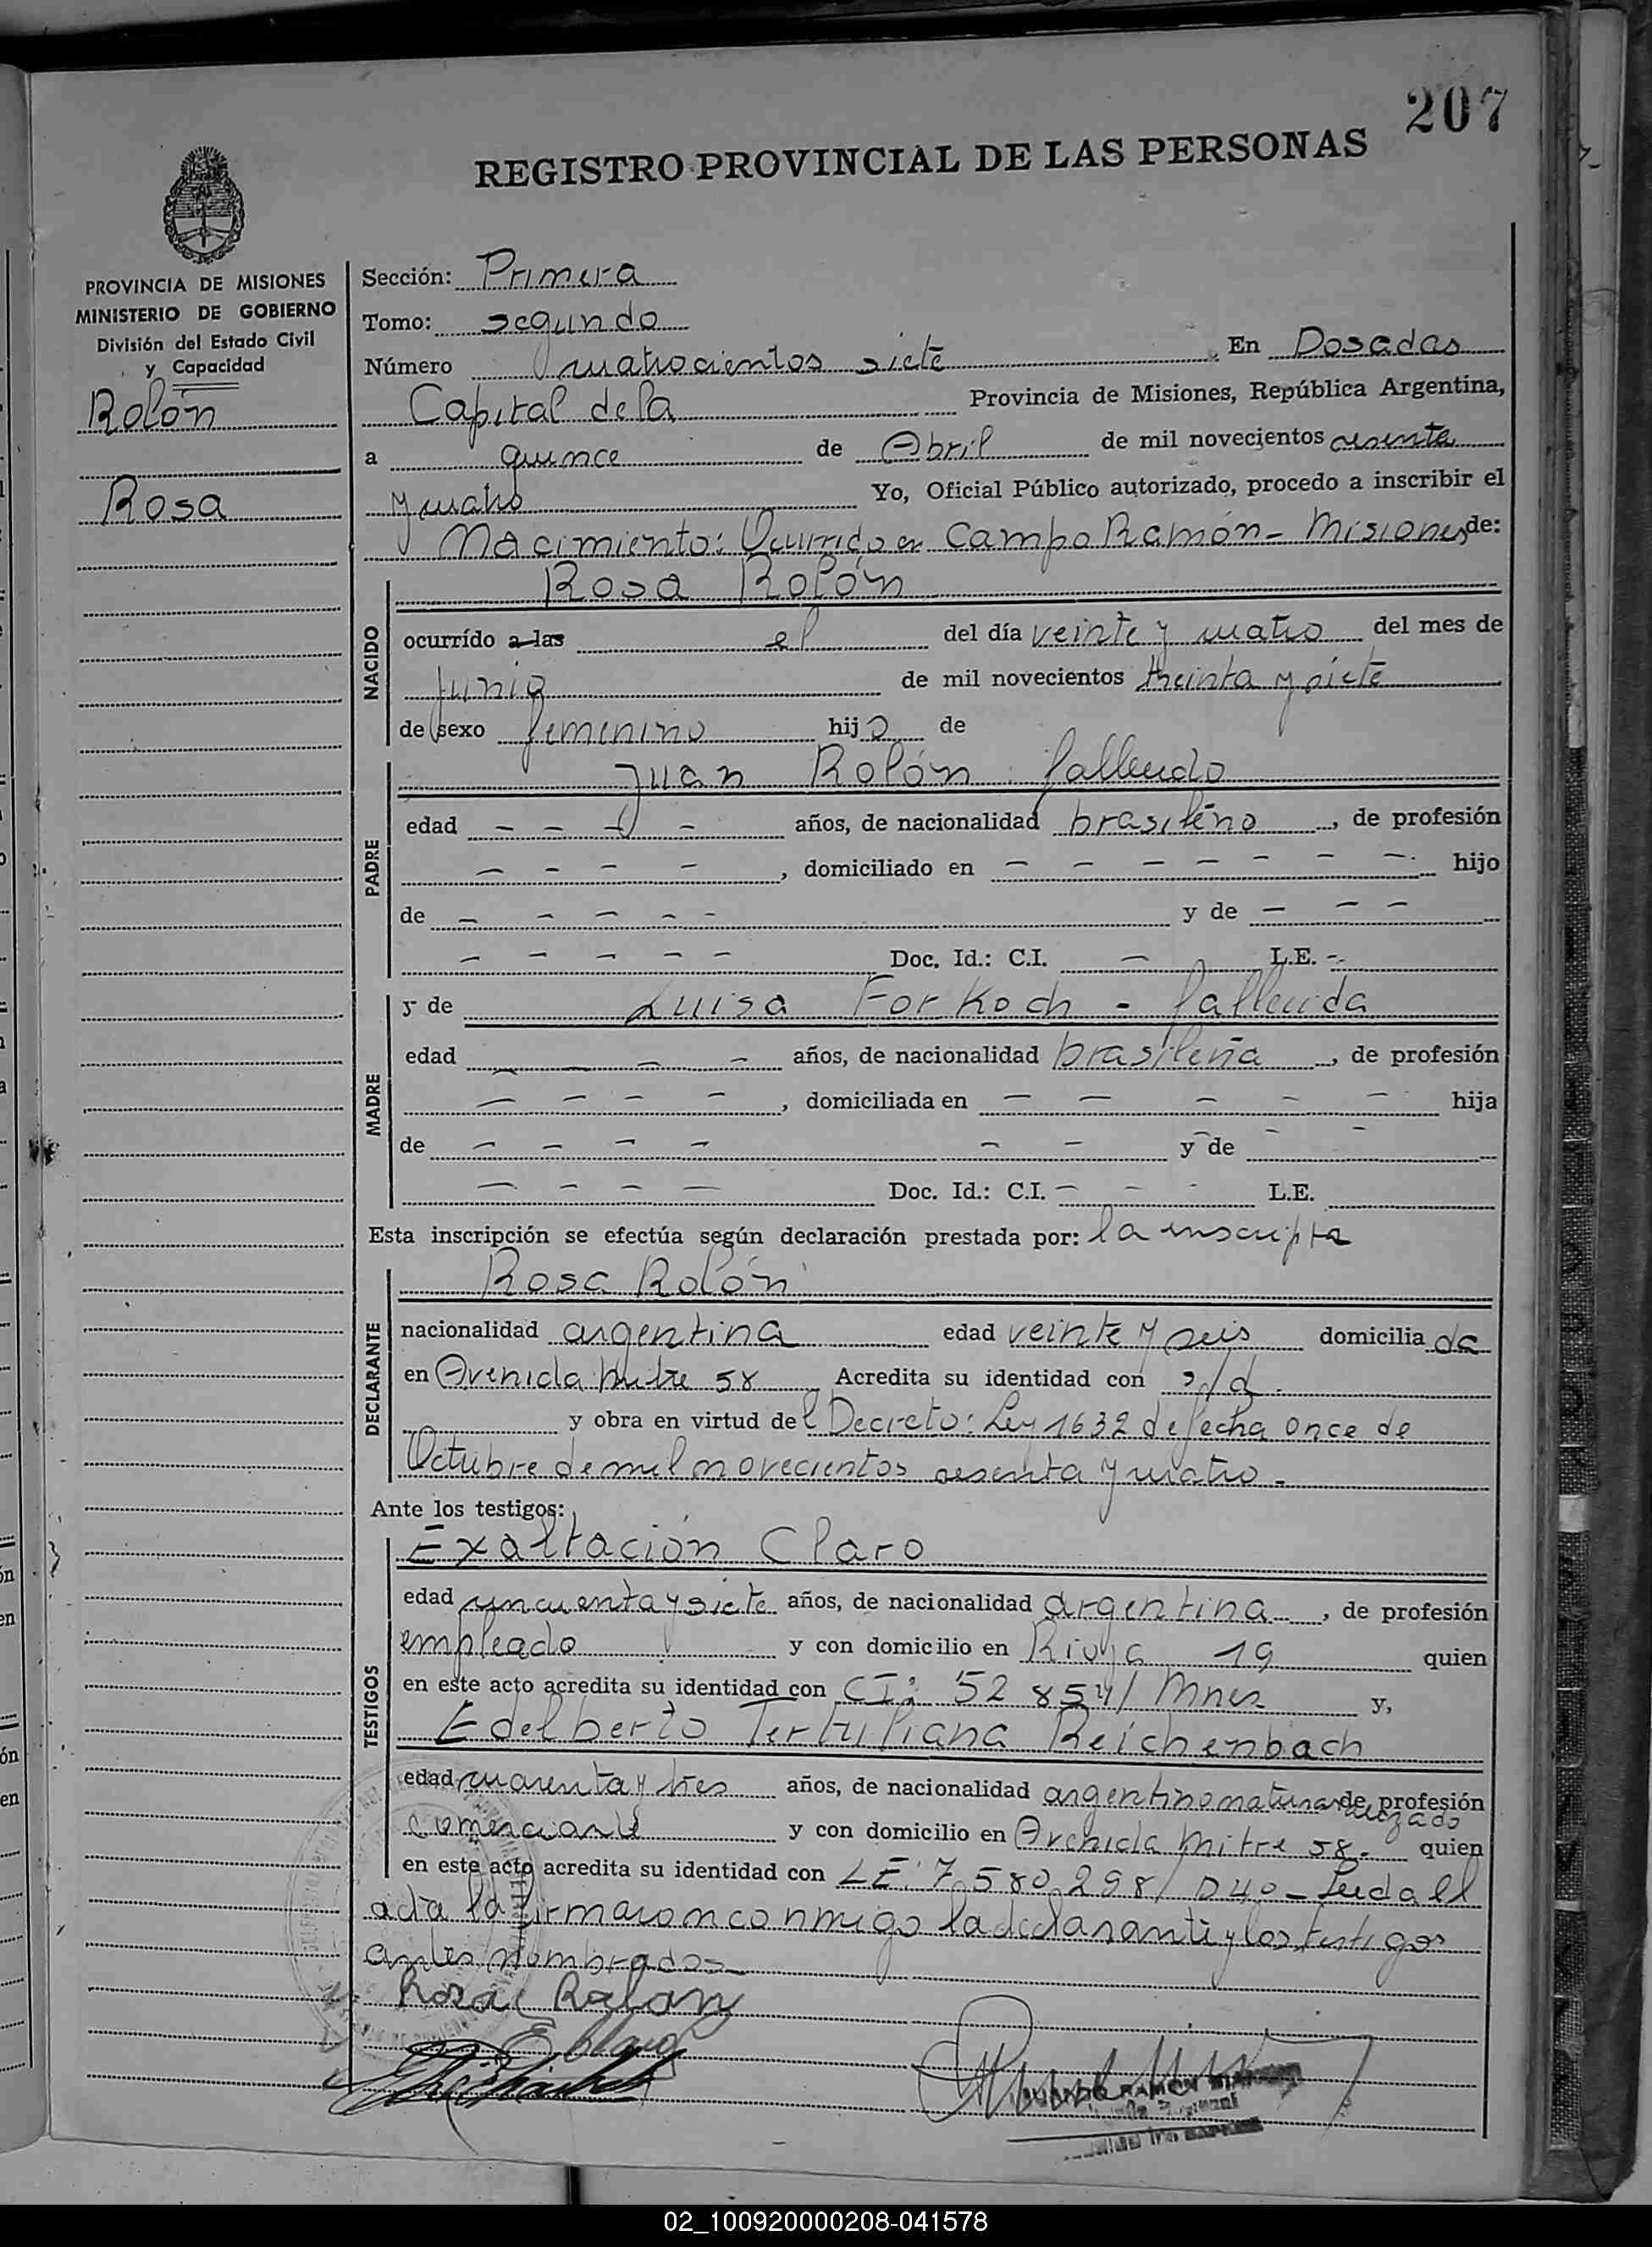 207
REGISTRO PROVINCIAL DE LAS PERSONAS
PROVINCIA DE MISIONES
MINISTERIO DE GOBIERNO
División del Estado Civil
y Capacidad
Rolón
Rosa
Sección: Primera
Tomo: segundo
Número cuatrocientos siete En Posadas
Capital de la Provincia de Misiones, República Argentina,
a quince de Abril de mil novecientos sesenta
y cuatro Yo, Oficial Público autorizado, procedo a inscribir el
Nacimiento: Ocurrido en Campo Ramón - Misiones de:
Rosa Rolón
NACIDO
ocurrido a las el del día veinte y cuatro del mes de
Junio de mil novecientos treinta y siete
de sexo femenino hija de
Juan Rolón fallecido
PADRE
edad - - - - años, de nacionalidad brasileño, de profesión
- - - -, domiciliado en - - - - - - - hijo
de - - - - - y de - - -
- - - - - Doc. Id.: C.I. - L.E. -
y de Luisa Forkoch - fallecida
MADRE
edad - - - - años, de nacionalidad brasileña, de profesión
- - - -, domiciliada en - - - - - hija
de - - - - - - y de - -
- - - - Doc. Id.: C.I. - - - L.E.
Esta inscripción se efectúa según declaración prestada por: la inscripta
Rosa Rolón
DECLARANTE
nacionalidad argentina edad veinte y seis domiciliada
en Avenida Mitre 58 Acredita su identidad con s/d.
y obra en virtud del Decreto: Ley 1632 de fecha once de
Octubre de mil novecientos sesenta y cuatro.-
Ante los testigos:
Exaltación Claro
TESTIGOS
edad cincuenta y siete años, de nacionalidad argentina, de profesión
empleado y con domicilio en Rioja 19 quien
en este acto acredita su identidad con CI: 52 854/ Mnes y,
Edelberto Tertuliana Reichenbach
edad cuarenta y tres años, de nacionalidad argentino naturalizado de profesión
comerciante y con domicilio en Avenida Mitre 58.- quien
en este acto acredita su identidad con LE: 7.580.298/ D40 - Leida el
acta la firmaron conmigo la declarante y los testigos
antes nombrados
Rosa Rolon
E Claro
RAMON
02_100920000208-041578